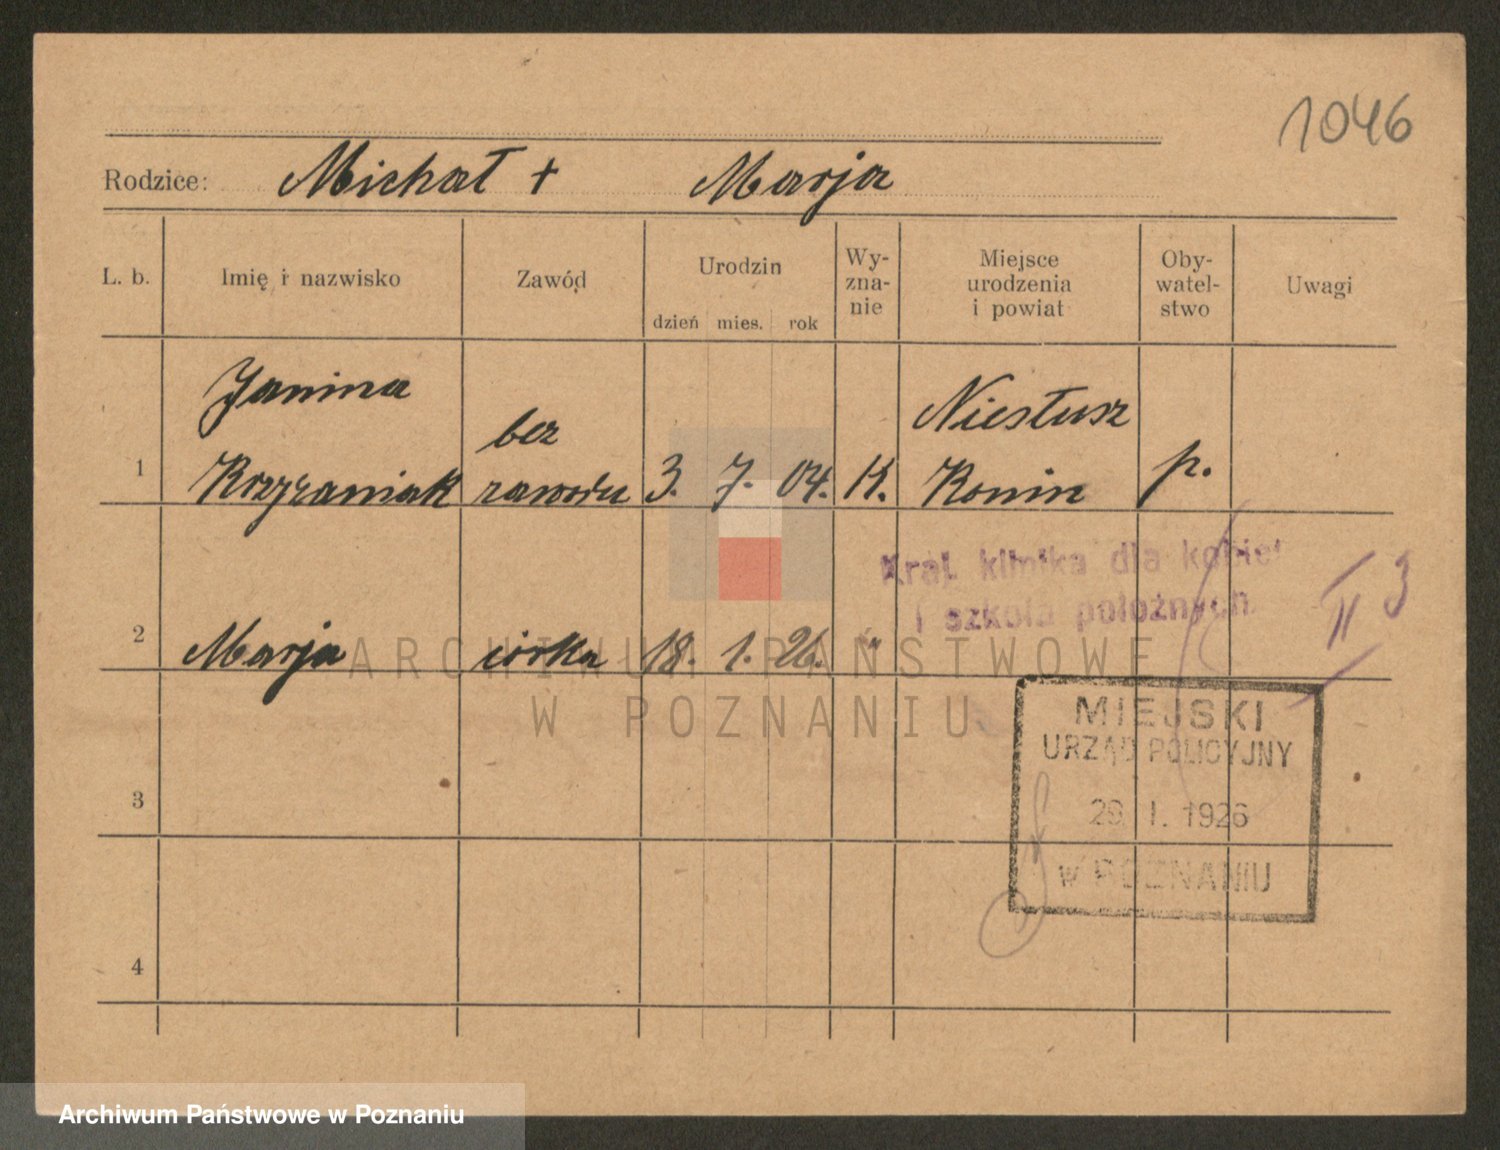 1046
Rodzice: Michał + Marja
L. b. Imię i nazwisko Zawód Urodzin Wy- Miejsce Oby- Uwagi
zna- urodzenia watel-
nie i powiat stwo
dzień mies. rok
Janina bez Niesłusz
1 Krzyżaniak zawodu 3. 7. 04. K. Konin p.
Kraj. klinika dla kobiet
i szkoła położnych
II 3
2 Marja córka 18. 1. 26. "
ARCHIWUM PAŃSTWOWE
W POZNANIU
MIEJSKI
URZĄD POLICYJNY
3
29. I. 1926
w POZNANIU
4
Archiwum Państwowe w Poznaniu